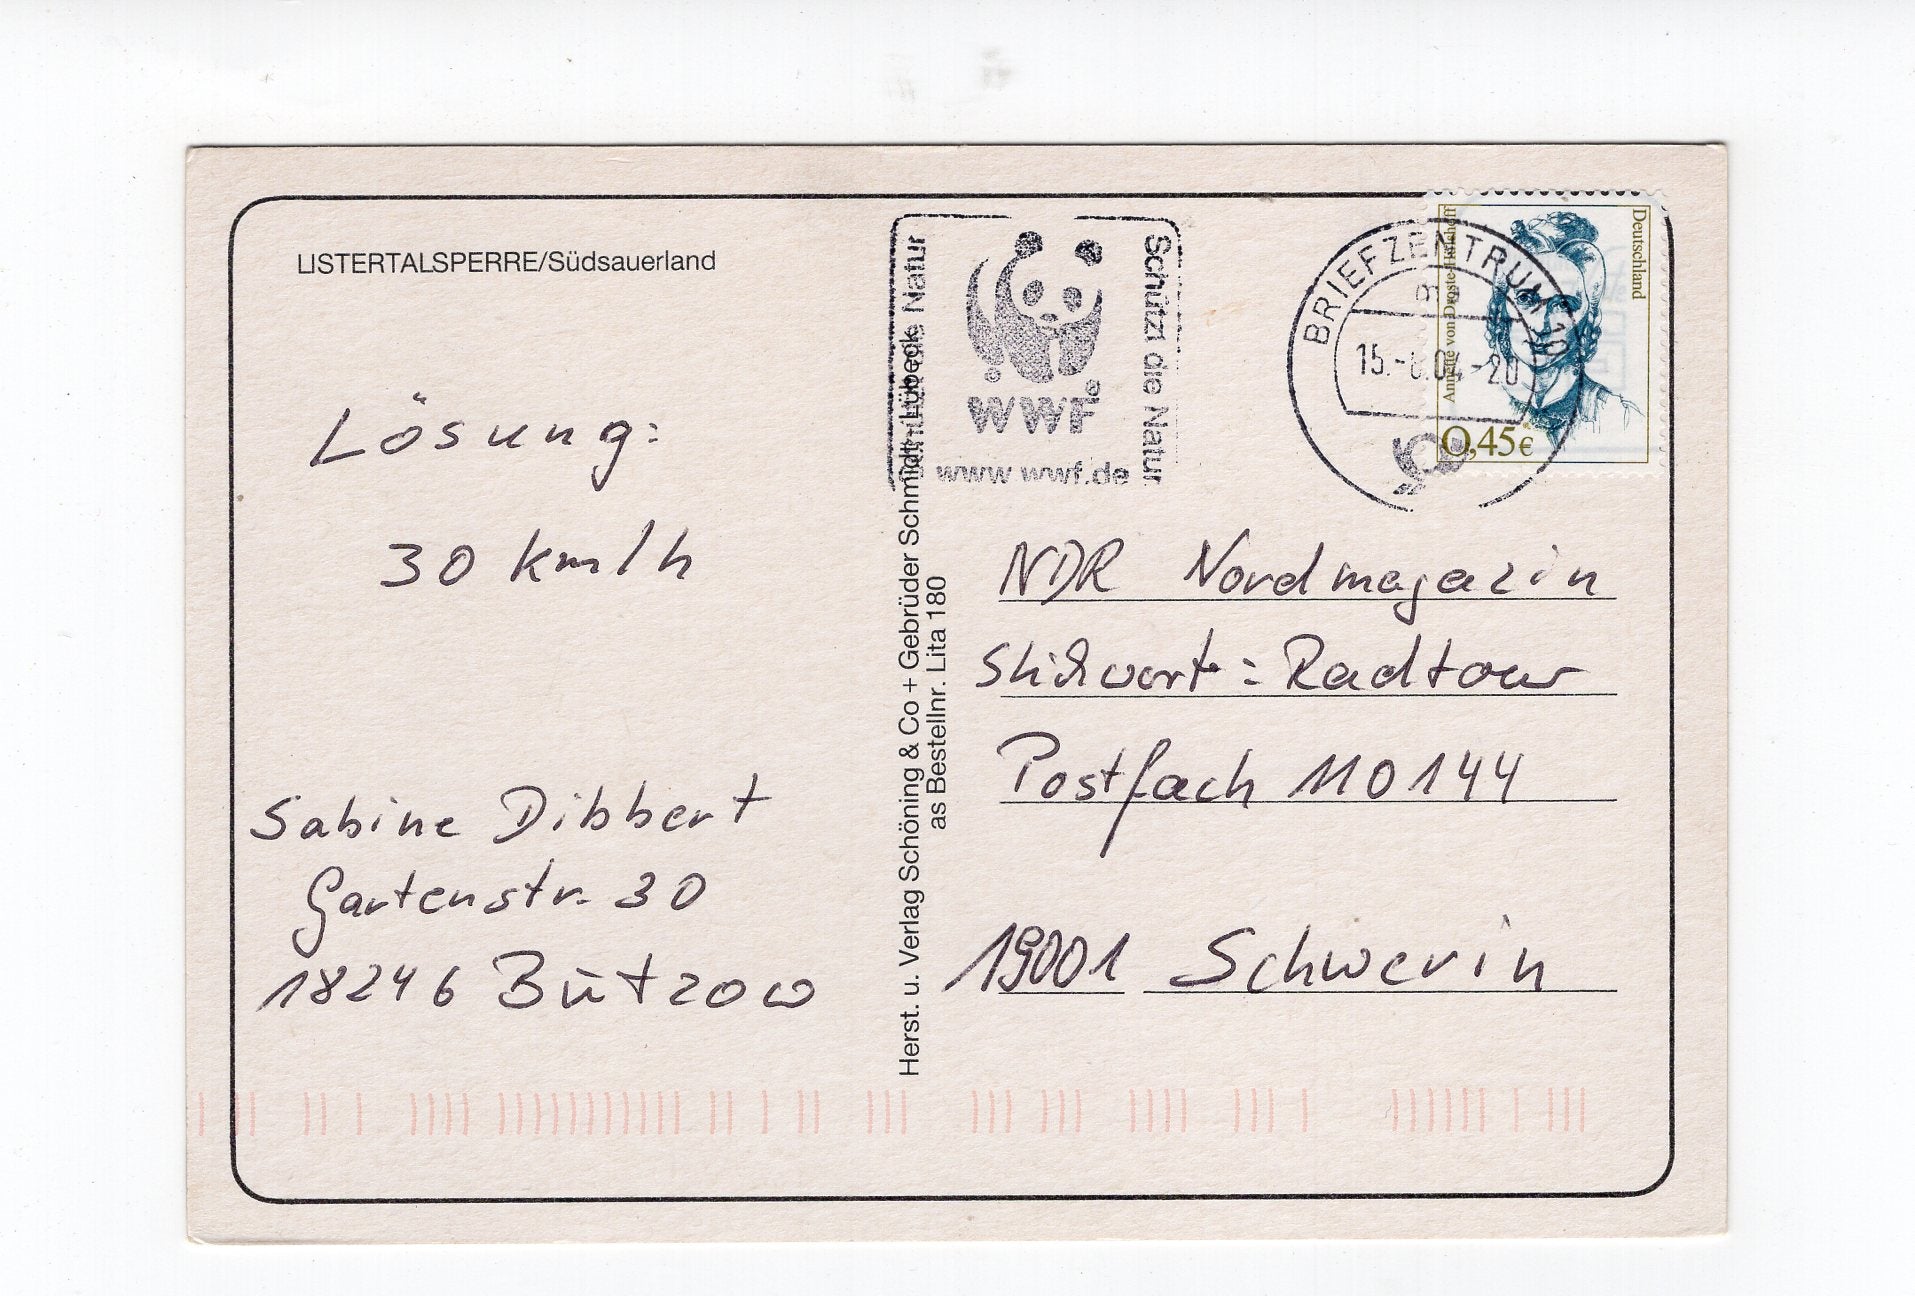 LISTERTALSPERRE/Südsauerland
Lösung:
30 km/h
Sabine Dibbert
Gartenstr. 30
18246 Bützow
Herst. u. Verlag Schöning & Co + Gebrüder Schmidt, Lübeck
as Bestellnr. Lita 180
Natur
WWF
www wwf.de
Schützt die Natur
BRIEFZENTRUM 10
15.-
.04.-20
Deutschland
Annette von Droste-Hülshoff
0,45€
NDR Nordmagazin
Stichwort: Radtour
Postfach 110144
19001 Schwerin